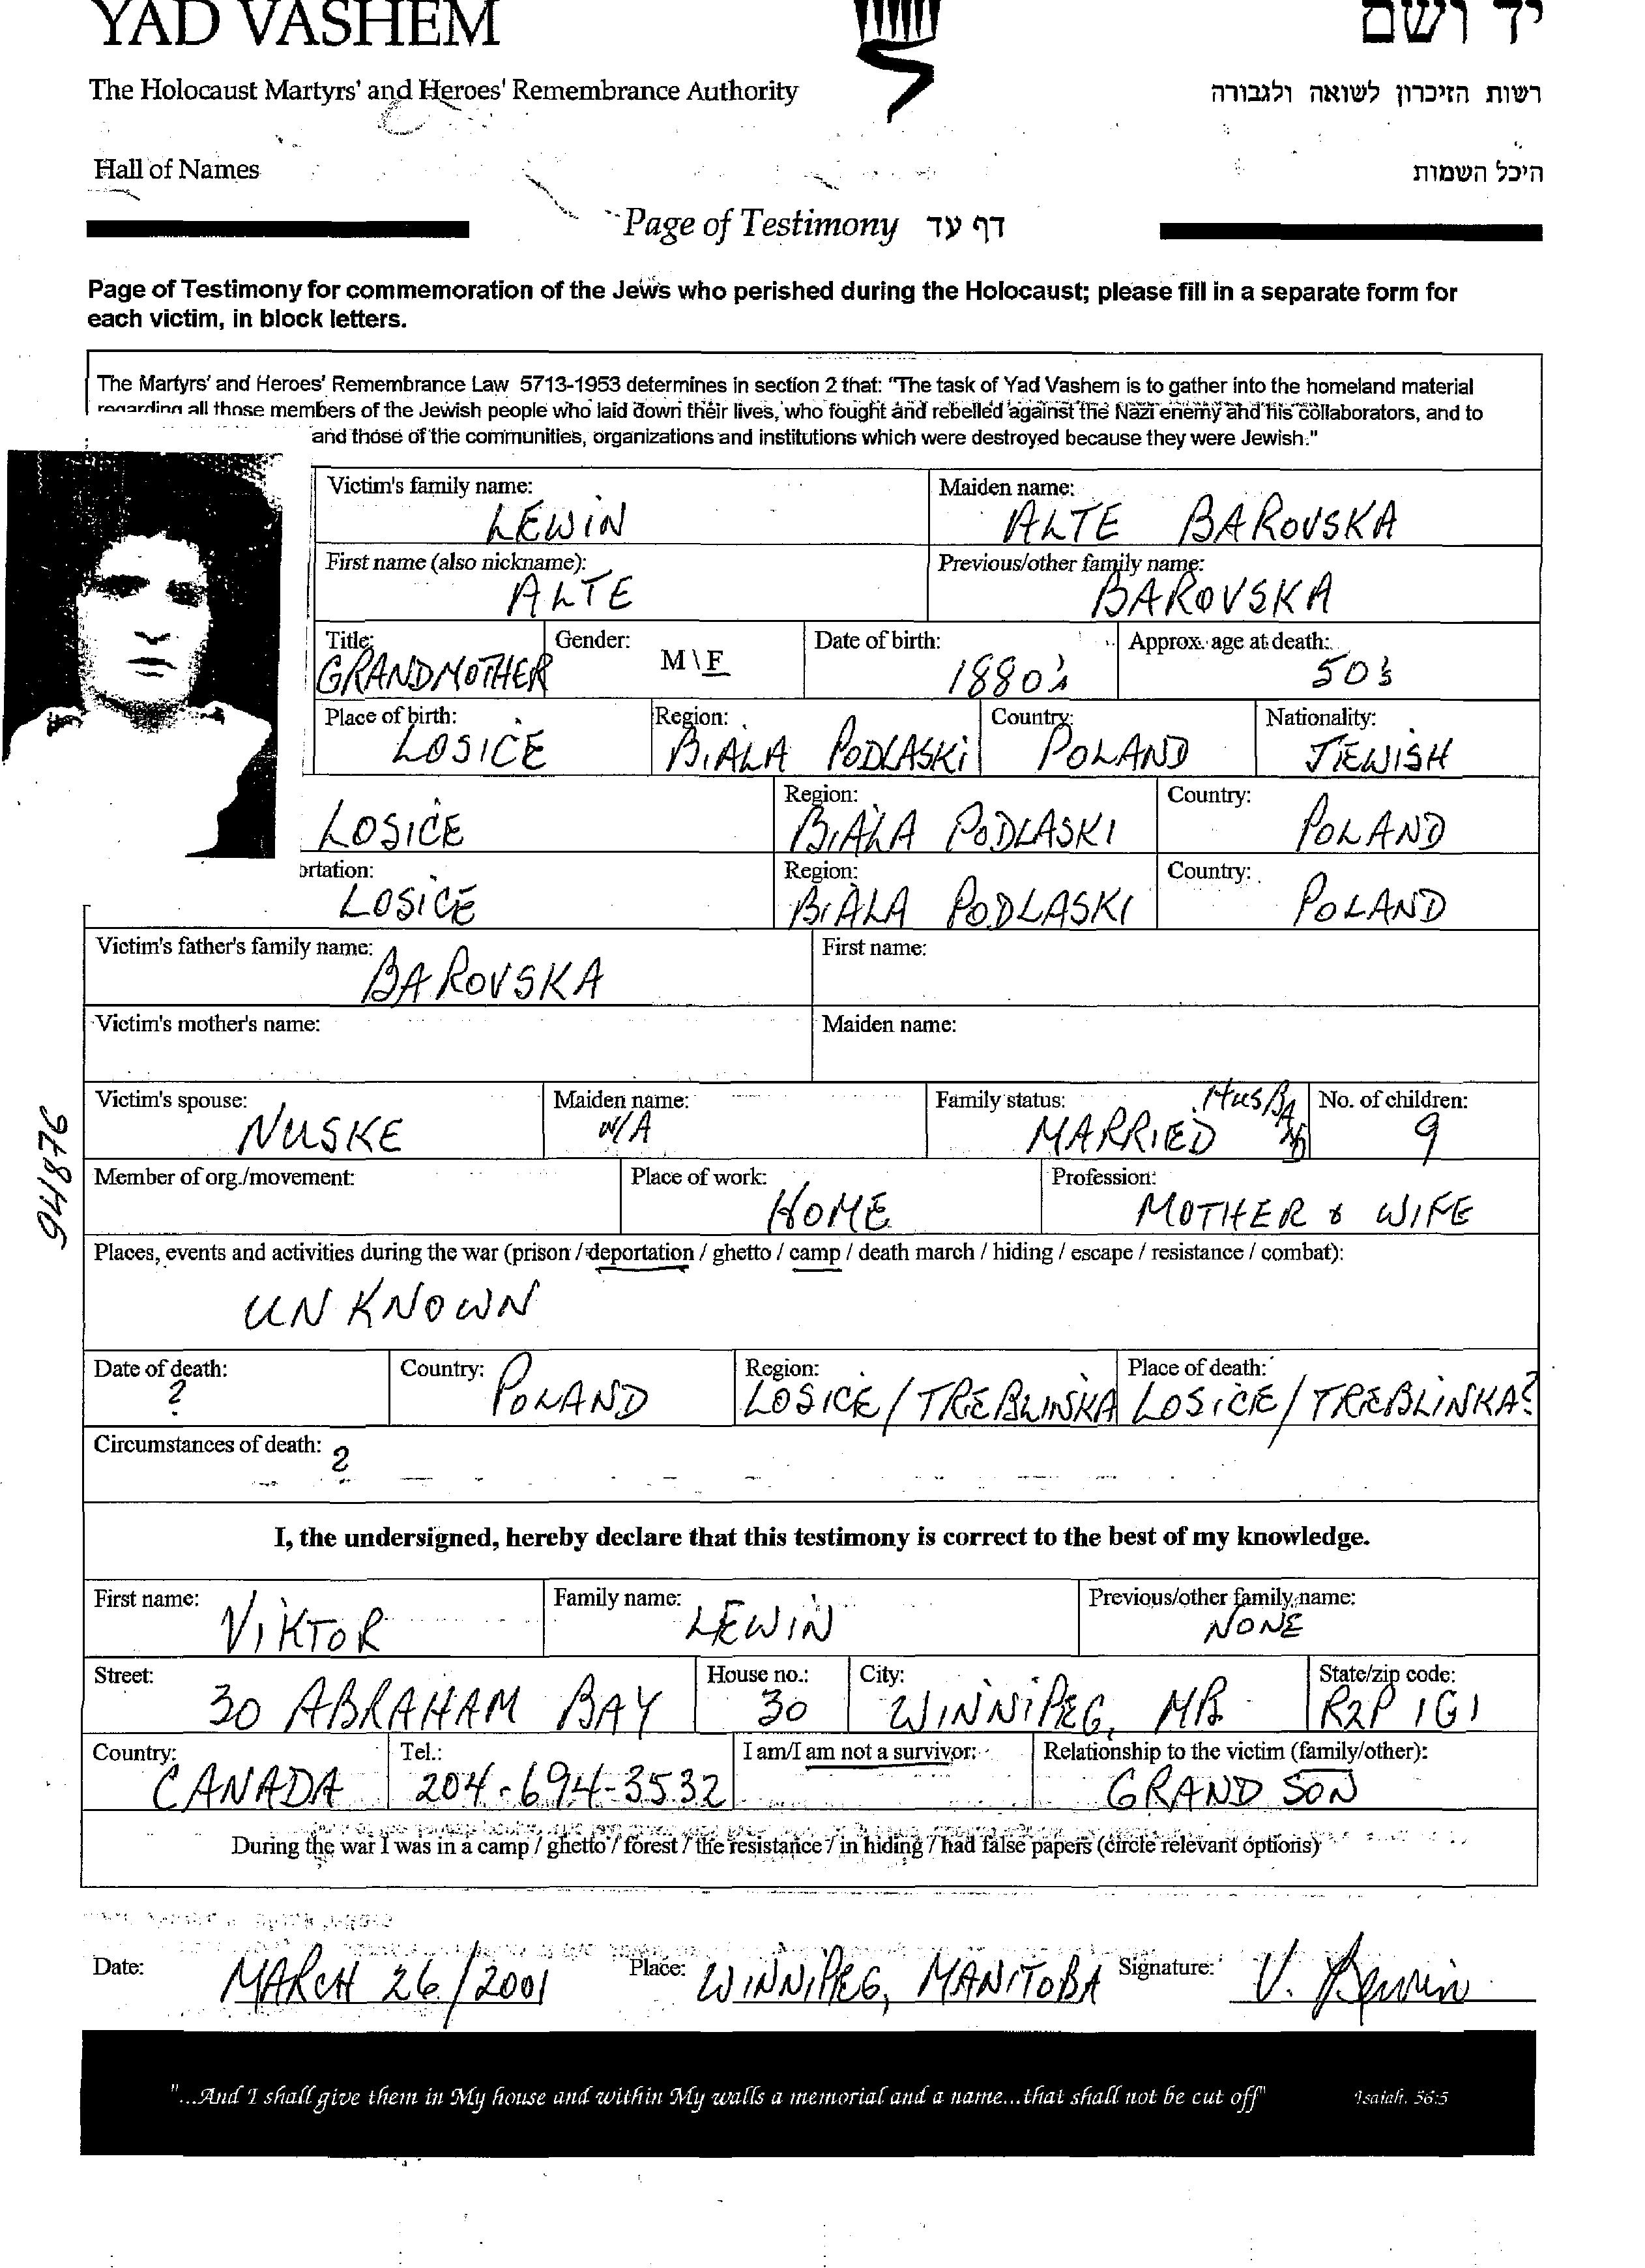 YAD VASHEM
יד ושם
The Holocaust Martyrs' and Heroes' Remembrance Authority
רשות הזיכרון לשואה ולגבורה
Hall of Names
היכל השמות
Page of Testimony דף עד
Page of Testimony for commemoration of the Jews who perished during the Holocaust; please fill in a separate form for
each victim, in block letters.
The Martyrs' and Heroes' Remembrance Law 5713-1953 determines in section 2 that: "The task of Yad Vashem is to gather into the homeland material
regarding all those members of the Jewish people who laid down their lives, who fought and rebelled against the Nazi enemy and his collaborators, and to
and those of the communities, organizations and institutions which were destroyed because they were Jewish."
Victim's family name: Maiden name:
LEWIN ALTE BAROVSKA
First name (also nickname): Previous/other family name:
ALTE BAROVSKA
Title: Gender: M\F Date of birth: Approx. age at death:
GRANDMOTHER 1880's 50's
Place of birth: Region: Country: Nationality:
LOSICE BIALA PODLASKI POLAND JEWISH
Region: Country:
LOSICE BIALA PODLASKI POLAND
ortation: Region: Country:
LOSICE BIALA PODLASKI POLAND
Victim's father's family name: First name:
BAROVSKA
Victim's mother's name: Maiden name:
Victim's spouse: Maiden name: Family status: HUSBAND No. of children:
NUSKE N/A MARRIED 9
Member of org./movement: Place of work: Profession:
HOME MOTHER & WIFE
94876
Places, events and activities during the war (prison / deportation / ghetto / camp / death march / hiding / escape / resistance / combat):
UNKNOWN
Date of death: Country: Region: Place of death:
? POLAND LOSICE/TREBLINKA LOSICE/TREBLINKA?
Circumstances of death: ?
I, the undersigned, hereby declare that this testimony is correct to the best of my knowledge.
First name: Family name: Previous/other family name:
VIKTOR LEWIN NONE
Street: House no.: City: State/zip code:
30 ABRAHAM BAY 30 WINNIPEG, MB R2P 1G1
Country: Tel.: I am/I am not a survivor: Relationship to the victim (family/other):
CANADA 204-694-3532 GRAND SON
During the war I was in a camp / ghetto / forest / the resistance / in hiding / had false papers (circle relevant options)
Date: MARCH 26/2001 Place: WINNIPEG, MANITOBA Signature: V. Lewin
"...And I shall give them in My house and within My walls a memorial and a name...that shall not be cut off" Isaiah. 56:5